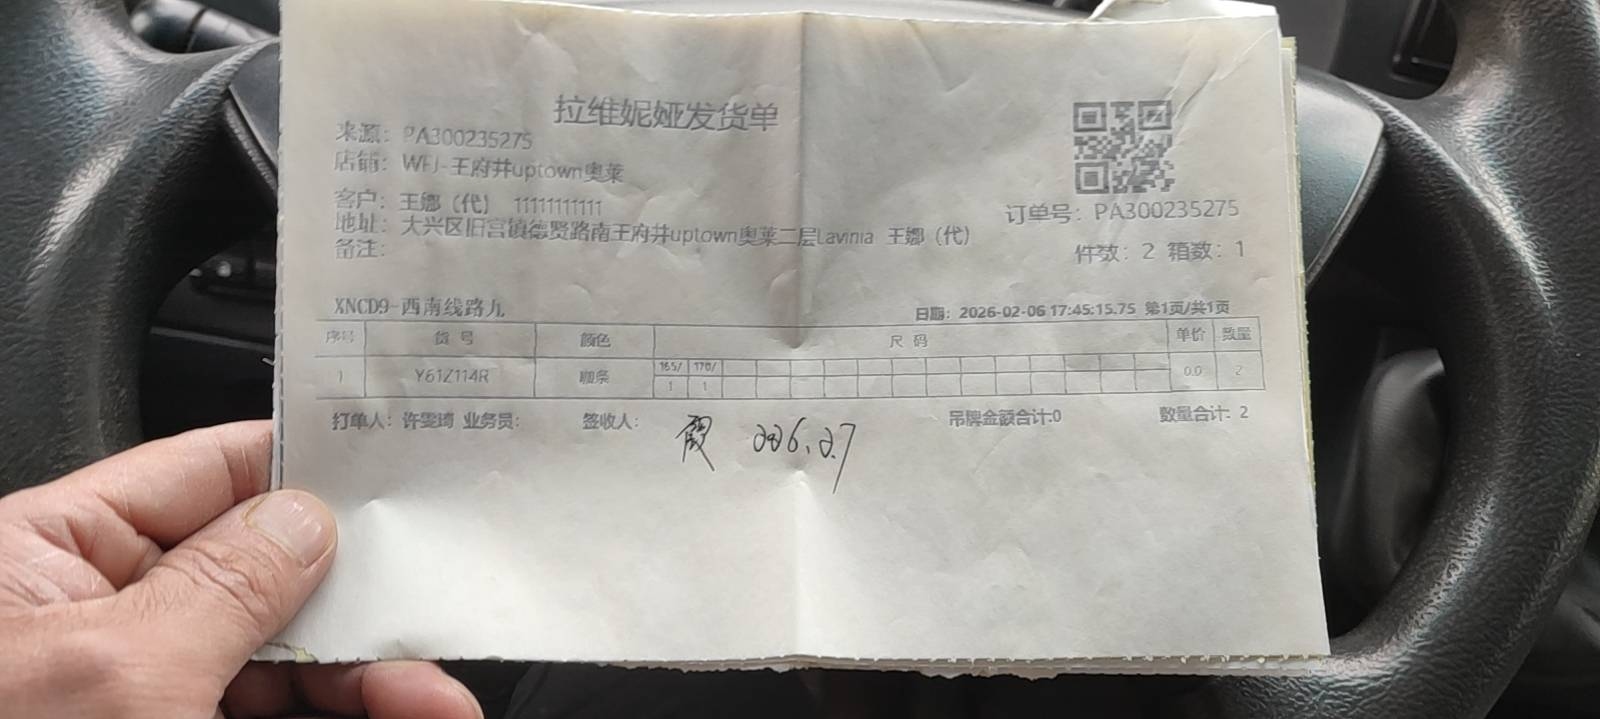 拉维妮娅发货单
来源：PA300235275
店铺：WFJ-王府井uptown奥莱
客户：王娜（代） 11111111111
地址：大兴区旧宫镇德贤路南王府井uptown奥莱二层Lavinia 王娜（代）
备注：
订单号：PA300235275
件数：2 箱数：1
XNCD9-西南线路九
日期：2026-02-06 17:45:15.75 第1页/共1页
序号 货号 颜色 尺码 单价 数量
165/ 170/
1 Y61Z114R 咖条 1 1 0.0 2
打单人：许雯琦 业务员： 签收人： 吊牌金额合计:0 数量合计: 2
霞 2026.2.7